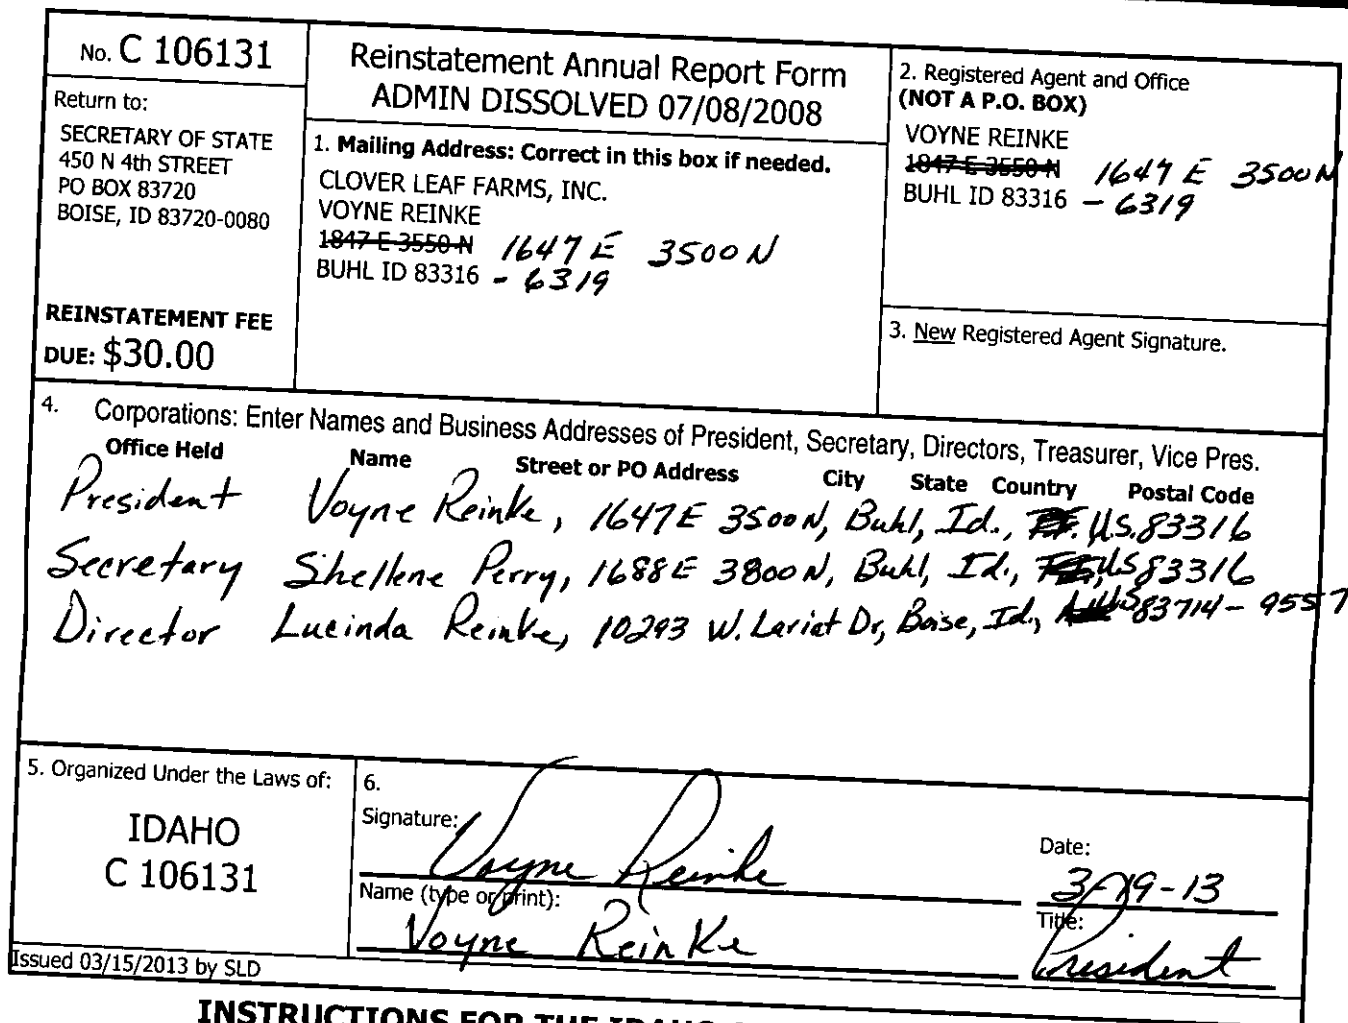 No. C 106131
Return to:
SECRETARY OF STATE
450 N 4th STREET
PO BOX 83720
BOISE, ID 83720-0080
REINSTATEMENT FEE
DUE: $30.00
Reinstatement Annual Report Form
ADMIN DISSOLVED 07/08/2008
1. Mailing Address: Correct in this box if needed.
CLOVER LEAF FARMS, INC.
VOYNE REINKE
1847 E 3550 N 1647 E 3500 N
BUHL ID 83316 - 6319
2. Registered Agent and Office
(NOT A P.O. BOX)
VOYNE REINKE
1847 E 3550 N 1647 E 3500 N
BUHL ID 83316 - 6319
3. New Registered Agent Signature.
4. Corporations: Enter Names and Business Addresses of President, Secretary, Directors, Treasurer, Vice Pres.
Office Held Name Street or PO Address City State Country Postal Code
President Voyne Reinke, 1647 E 3500 N, Buhl, Id., U.S. 83316
Secretary Shellene Perry, 1688 E 3800 N, Buhl, Id., US 83316
Director Lucinda Reinke, 10293 W. Lariat Dr, Boise, Id., US 83714-9557
5. Organized Under the Laws of:
IDAHO
C 106131
6.
Signature: Voyne Reinke
Date: 3-19-13
Name (type or print): Voyne Reinke
Title: President
Issued 03/15/2013 by SLD
INSTRUCTIONS FOR THE IDAHO